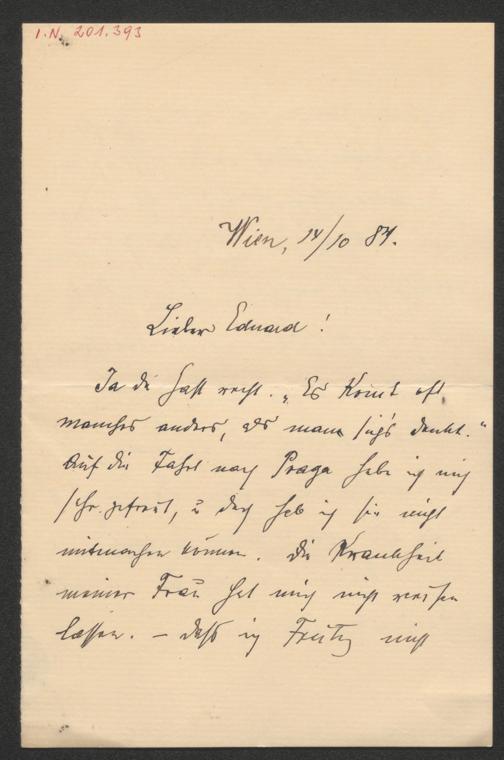 I.N. 201.393
Wien, 14/10 87.
Lieber Eduard!
Ja du hast recht. „Es kommt oft
manches anders, als man sich's denkt."
Auf die Fahrt nach Praga habe ich mich
sehr gefreut, u doch hab ich sie nicht
mitmachen können. Die Krankheit
meiner Frau hat mich nicht reisen
lassen. – daß ich nicht